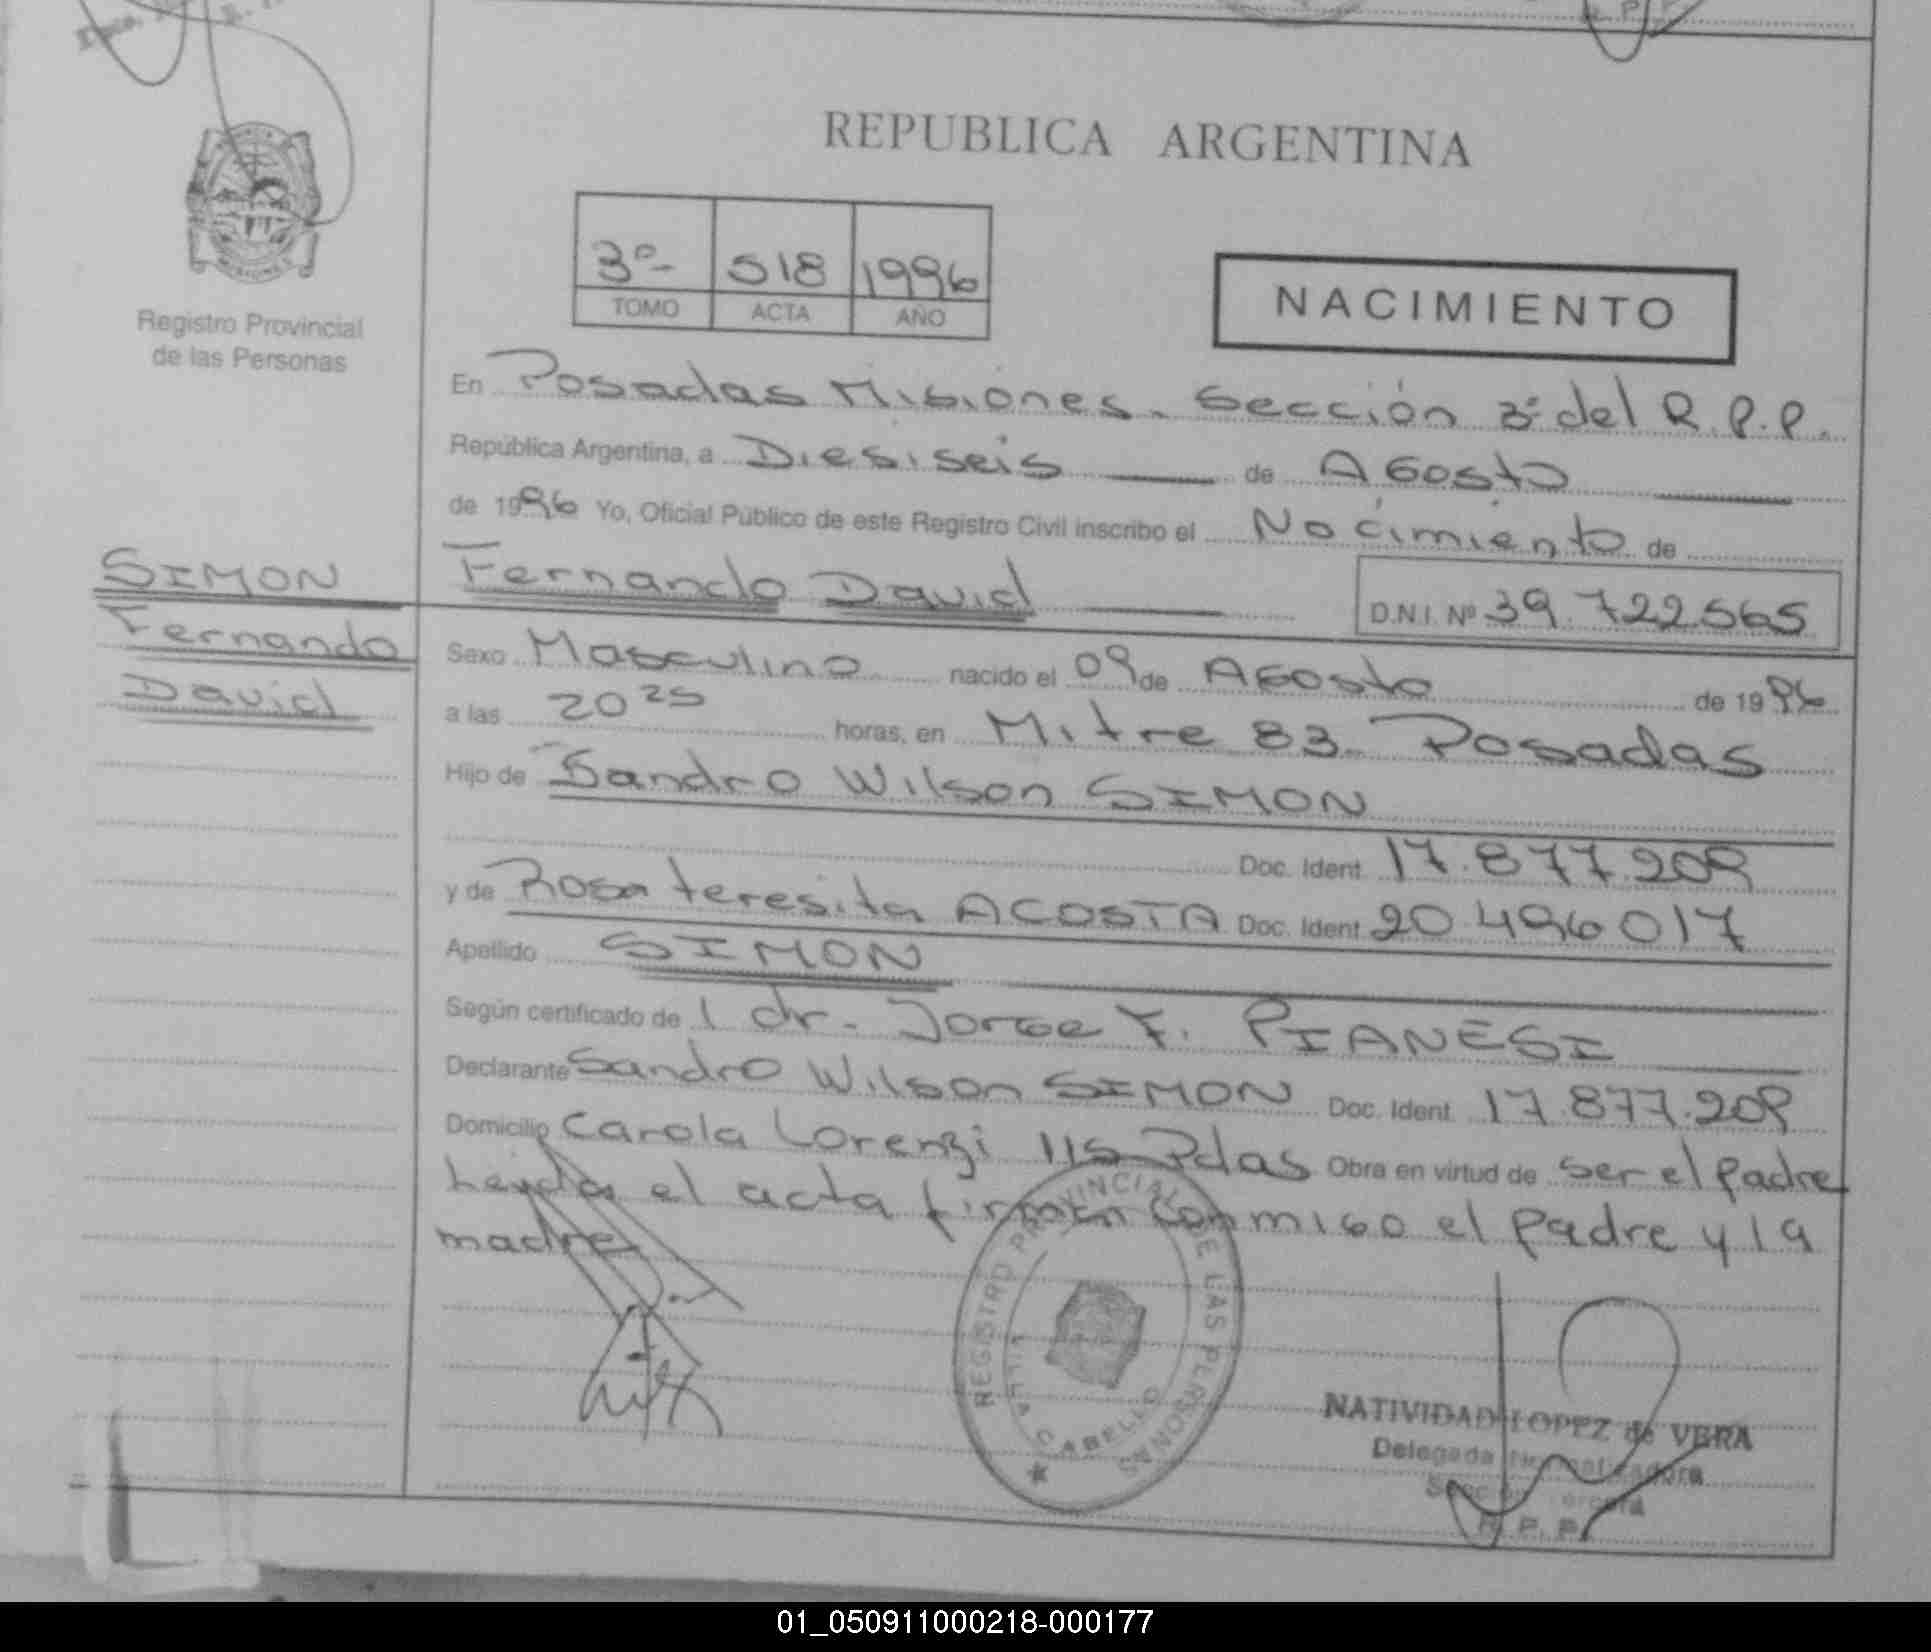 REPUBLICA ARGENTINA
3º 518 1996
TOMO ACTA AÑO
NACIMIENTO
Registro Provincial
de las Personas
En Posadas Misiones. Sección 3ª del R.P.P.
República Argentina, a Diesiseis de Agosto
de 1996 Yo, Oficial Público de este Registro Civil inscribo el Nacimiento de
SIMON
Fernando David
D.N.I. Nº 39.722.565
Fernando
David
Sexo Masculino nacido el 09 de Agosto de 1996
a las 20 25 horas, en Mitre 83 Posadas
Hijo de Sandro Wilson SIMON
Doc. Ident. 17.877.209
y de Rosa teresita ACOSTA Doc. Ident. 20.496017
Apellido SIMON
Según certificado de l dr. Jorge F. PIANESI
Declarante Sandro Wilson SIMON Doc. Ident. 17.877.209
Domicilio Carola Lorenzi 115 Pdas Obra en virtud de ser el padre
Leyda el acta firman conmigo el padre y la
madre
REGISTRO PROVINCIAL DE LAS PERSONAS
VILLA CABELLO
NATIVIDAD LOPEZ de VERA
Delegada Normalizadora
Sección Tercera
R. P. P.
01_050911000218-000177